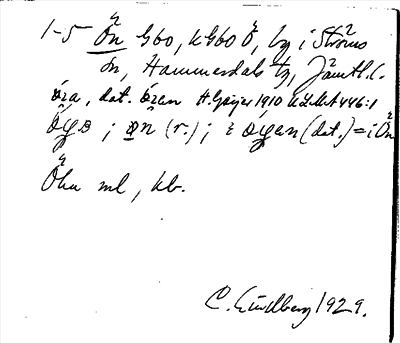 1-5 Ön Gbo, kGbo Ö, by i Ströms
ön, Hammerdals tg, Jämtl. l.
øra, dat. øren H. Geijer 1910 ULMA 446:1
øyø ; øn (r.) ; i øyen (dat.) = i Ön
Öhn ml, kb.
C. Lindberg 1929.